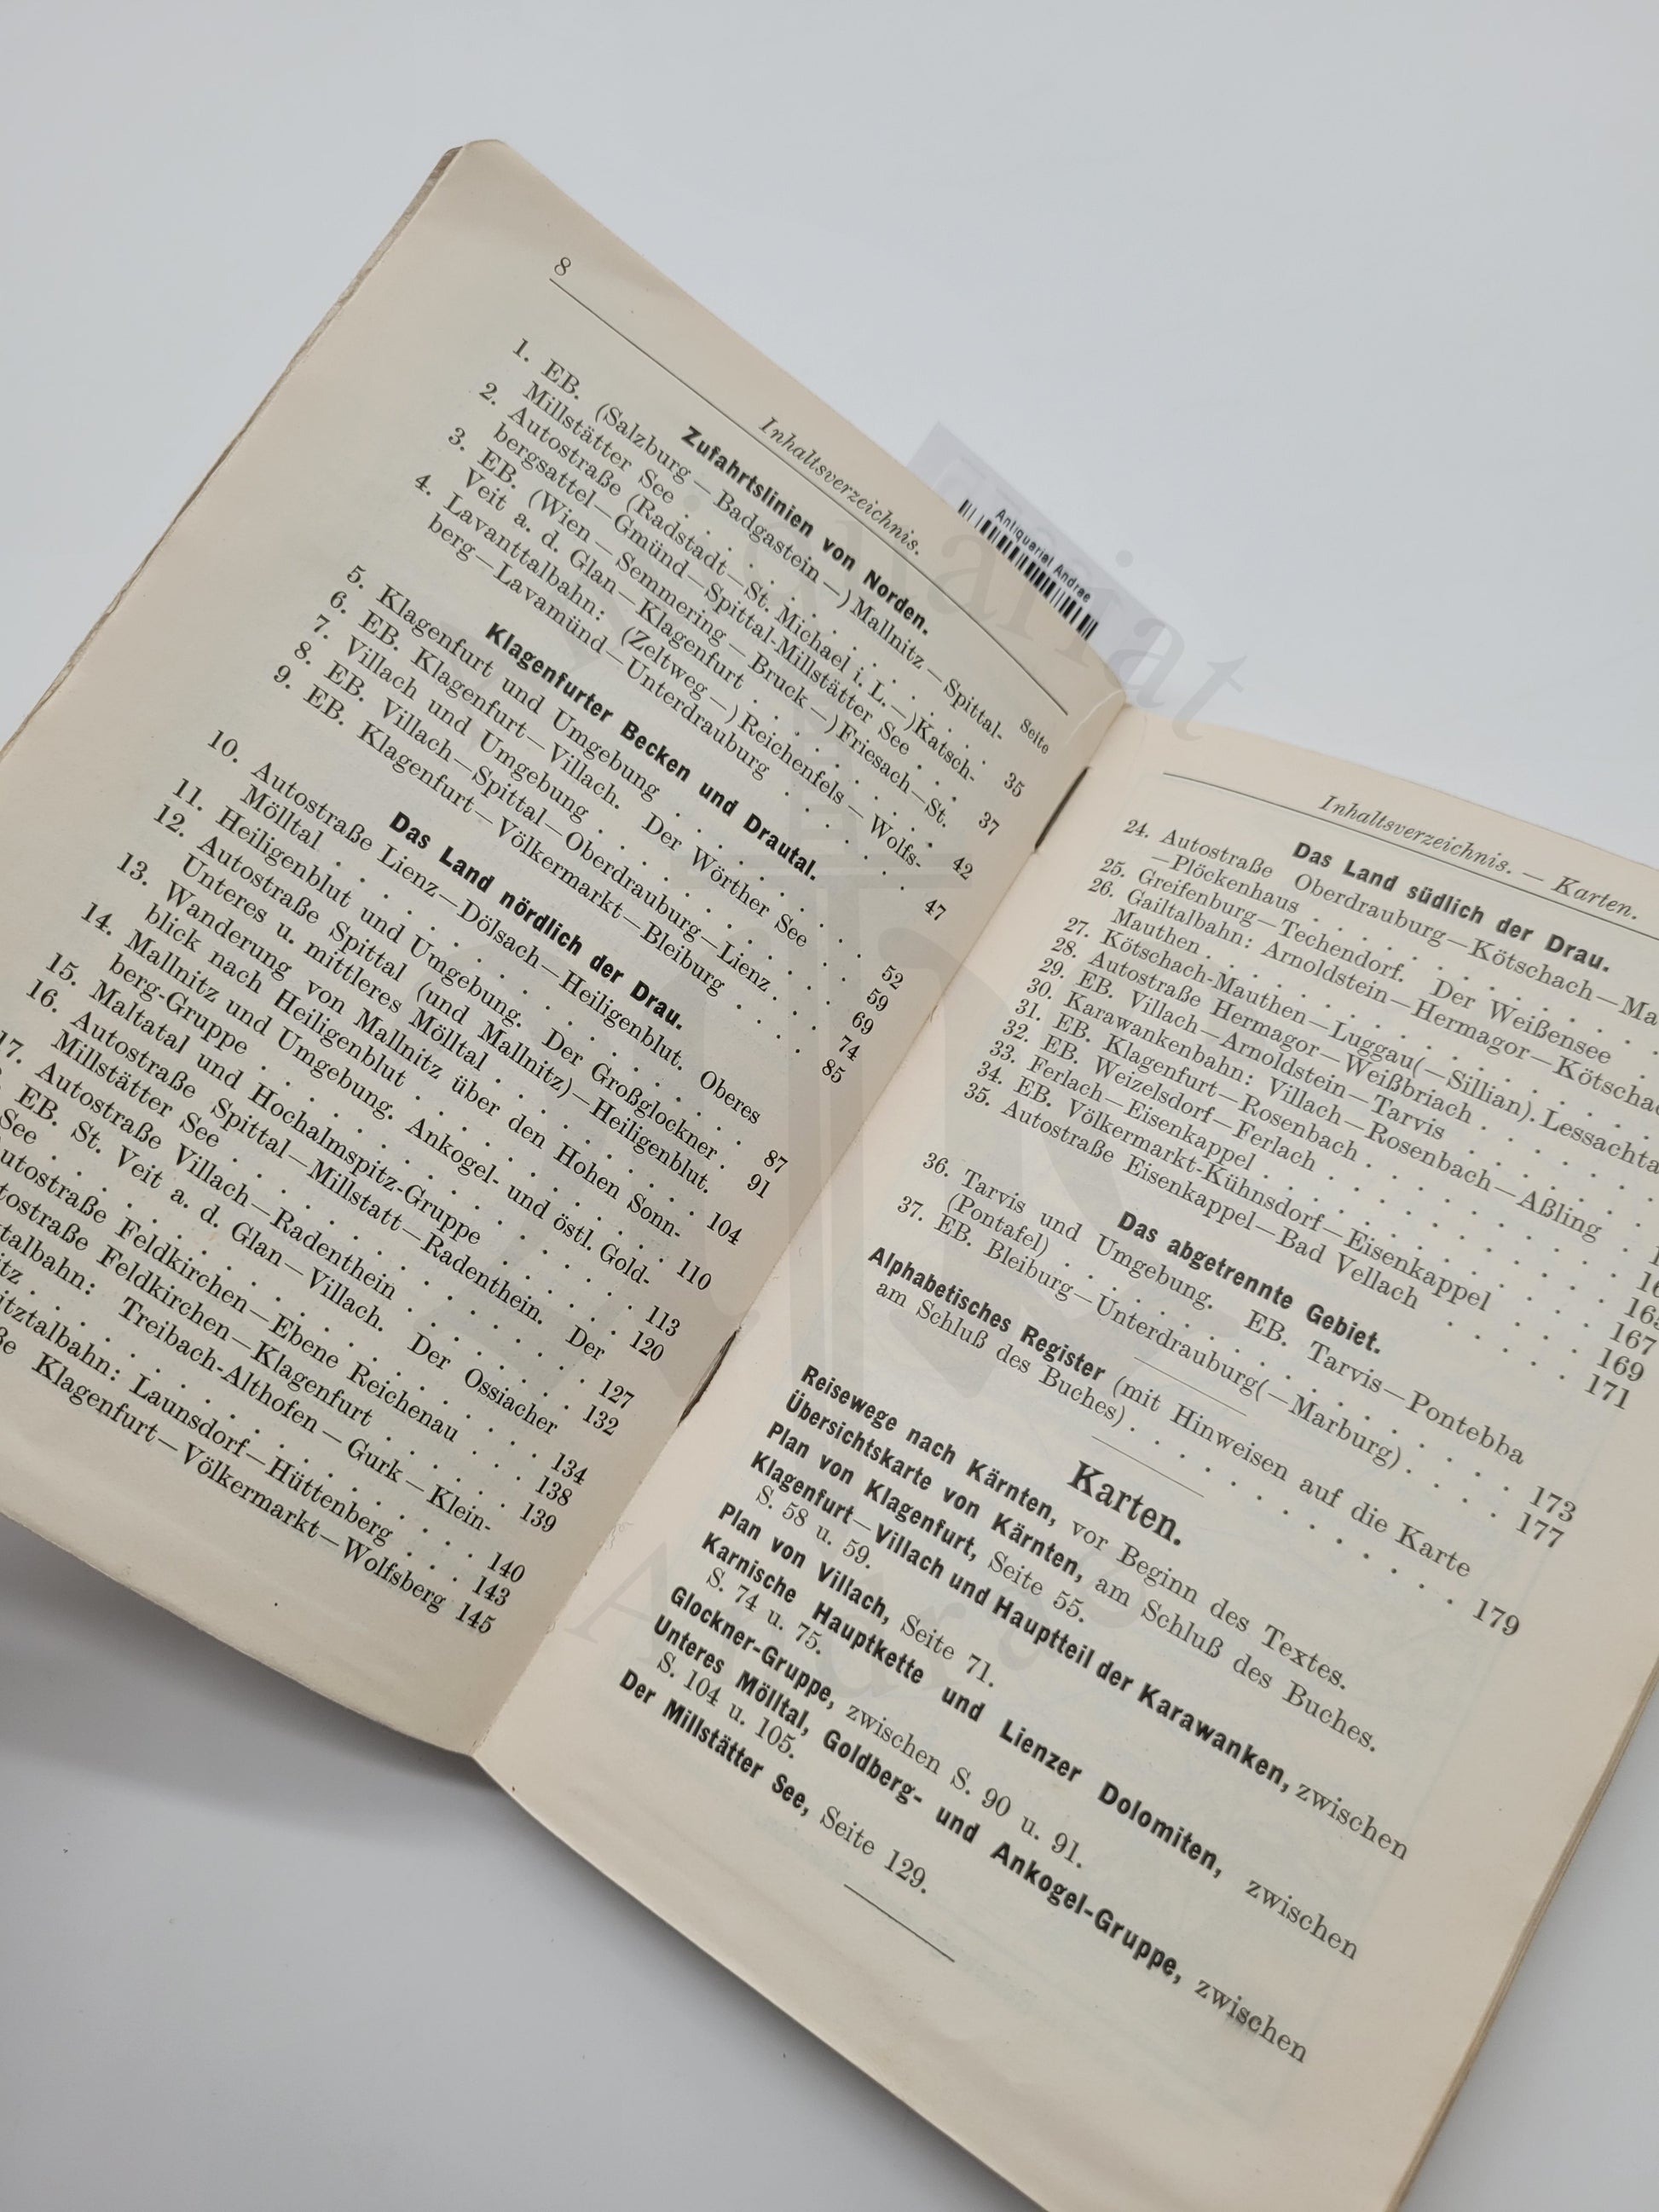 8
Inhaltsverzeichnis.
Seite
Zufahrtslinien von Norden.
1. EB. (Salzburg—Badgastein—)Mallnitz—Spittal-
Millstätter See . . . 35
2. Autostraße (Radstadt—St. Michael i. L.—)Katsch-
bergsattel—Gmünd—Spittal-Millstätter See . . . 37
3. EB. (Wien—Semmering—Bruck—)Friesach—St.
Veit a. d. Glan—Klagenfurt . . . 42
4. Lavanttalbahn: (Zeltweg—)Reichenfels—Wolfs-
berg—Lavamünd—Unterdrauburg . . . 47
Klagenfurter Becken und Drautal.
5. Klagenfurt und Umgebung . . . 52
6. EB. Klagenfurt—Villach. Der Wörther See . . . 59
7. Villach und Umgebung . . . 69
8. EB. Villach—Spittal—Oberdrauburg—Lienz . . . 74
9. EB. Klagenfurt—Völkermarkt—Bleiburg . . . 85
Das Land nördlich der Drau.
10. Autostraße Lienz—Dölsach—Heiligenblut. Oberes
Mölltal . . . 87
11. Heiligenblut und Umgebung. Der Großglockner . 91
12. Autostraße Spittal (und Mallnitz)—Heiligenblut.
Unteres u. mittleres Mölltal . . . 104
13. Wanderung von Mallnitz über den Hohen Sonn-
blick nach Heiligenblut . . . 110
14. Mallnitz und Umgebung. Ankogel- und östl. Gold-
berg-Gruppe . . . 113
15. Maltatal und Hochalmspitz-Gruppe . . . 120
16. Autostraße Spittal—Millstatt—Radenthein. Der
Millstätter See . . . 127
17. Autostraße Villach—Radenthein . . . 132
EB. St. Veit a. d. Glan—Villach. Der Ossiacher
See . . . 134
Feldkirchen—Ebene Reichenau . . . 138
Feldkirchen—Klagenfurt . . . 139
Treibach-Althofen—Gurk—Klein-
. . . 140
Launsdorf—Hüttenberg . . . 143
Klagenfurt—Völkermarkt—Wolfsberg 145
Antiquariat Andrae
Inhaltsverzeichnis. — Karten.
Das Land südlich der Drau.
24. Autostraße Oberdrauburg—Kötschach—
—Plöckenhaus . . .
25. Greifenburg—Techendorf. Der Weißensee . . .
26. Gailtalbahn: Arnoldstein—Hermagor—
Mauthen . . .
27. Kötschach-Mauthen—Luggau(—Sillian).
28. Autostraße Hermagor—Weißbriach . . .
29. EB. Villach—Arnoldstein—Tarvis . . .
30. Karawankenbahn: Villach—Rosenbach—Aßling .
31. EB. Klagenfurt—Rosenbach . . .
32. EB. Weizelsdorf—Ferlach . . .
33. Ferlach—Eisenkappel . . . 167
34. EB. Völkermarkt-Kühnsdorf—Eisenkappel . . . 169
35. Autostraße Eisenkappel—Bad Vellach . . . 171
Das abgetrennte Gebiet.
36. Tarvis und Umgebung. EB. Tarvis—Pontebba
(Pontafel) . . . 173
37. EB. Bleiburg—Unterdrauburg(—Marburg) . . . 177
Alphabetisches Register (mit Hinweisen auf die Karte
am Schluß des Buches) . . . 179
Karten.
Reisewege nach Kärnten, vor Beginn des Textes.
Übersichtskarte von Kärnten, am Schluß des Buches.
Plan von Klagenfurt, Seite 55.
Klagenfurt—Villach und Hauptteil der Karawanken, zwischen
S. 58 u. 59.
Plan von Villach, Seite 71.
Karnische Hauptkette und Lienzer Dolomiten, zwischen
S. 74 u. 75.
Glockner-Gruppe, zwischen S. 90 u. 91.
Unteres Mölltal, Goldberg- und Ankogel-Gruppe, zwischen
S. 104 u. 105.
Der Millstätter See, Seite 129.